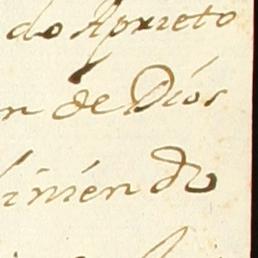 do Aprieto
n de Dios
viniendo